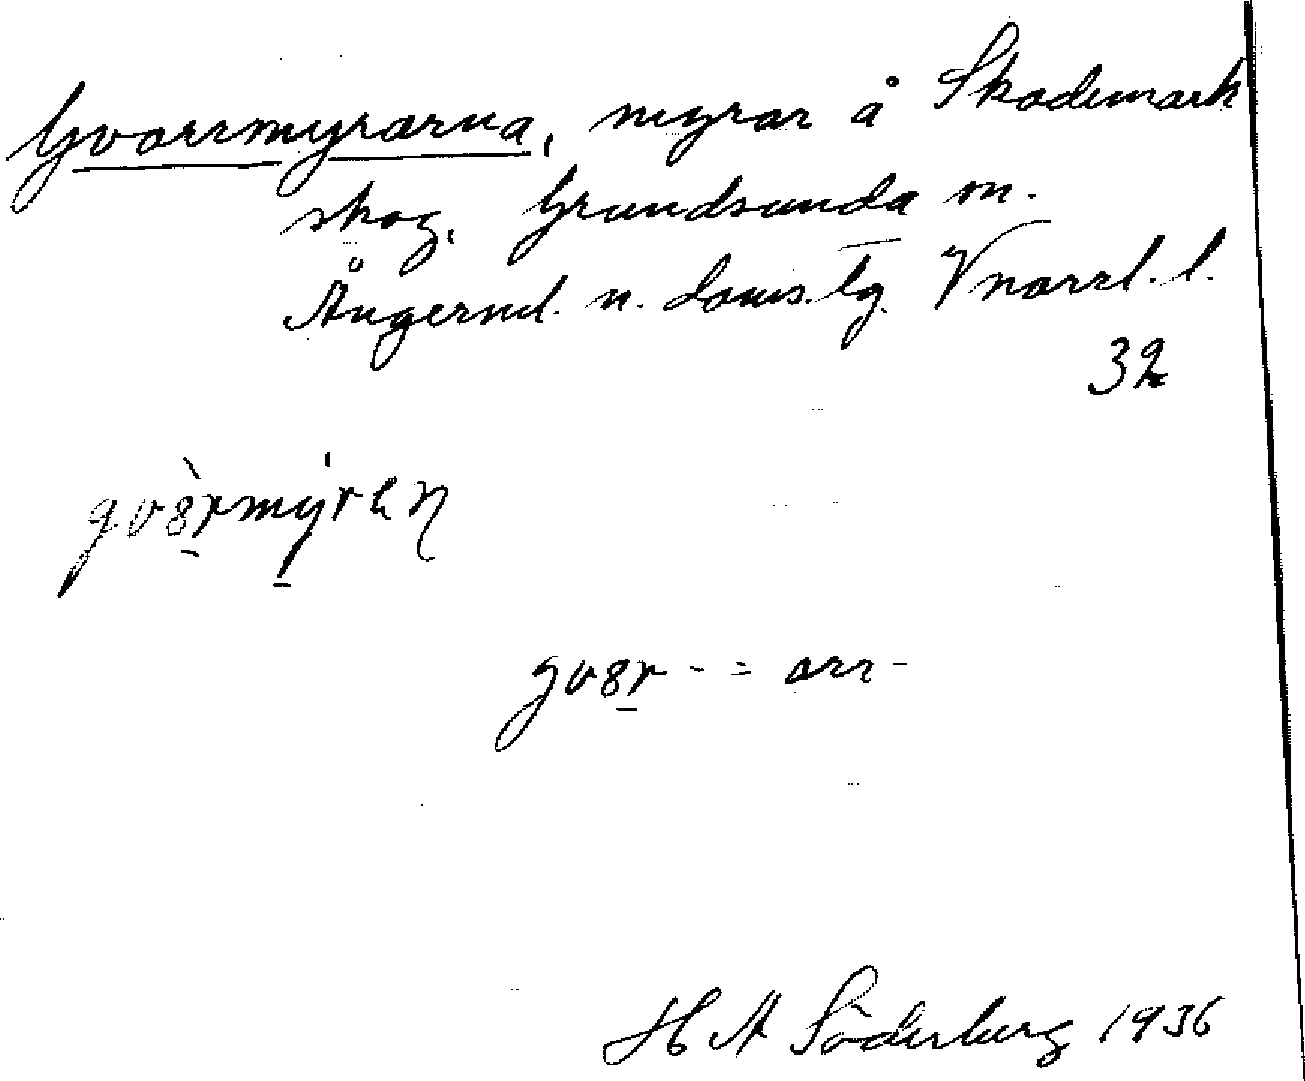 Gvarrmyrarna, myrar å Skademark
skog, Grundsunda sn.
Ångerml. n. doms.lg. Vnorrl. l.
32
gvɔrmyrɐn
gvɔr - = arr -
H A Söderberg 1936